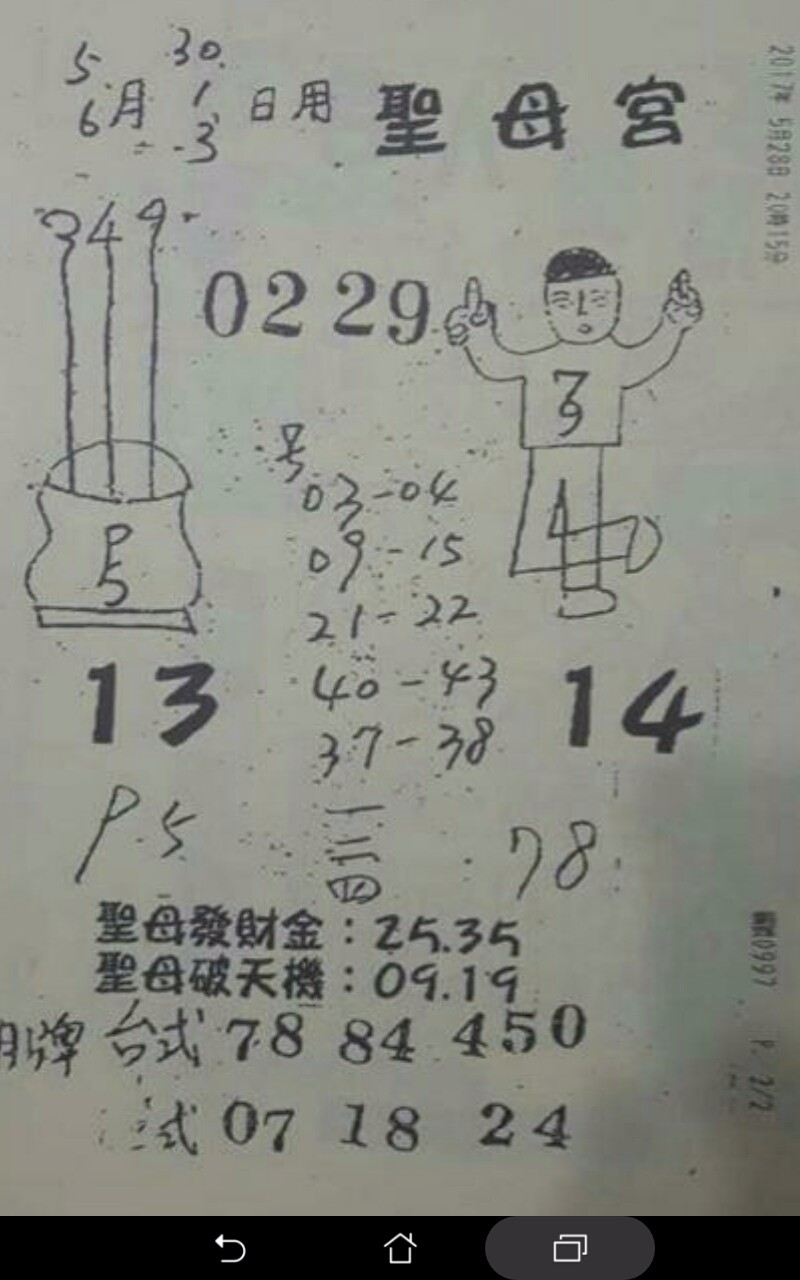 5 30.
6月 1 日用 聖母宮
-3
2017年 5月28日 20時15分
349
02 29
号
03-04
09-15
21-22
40-43
37-38
13
14
P.5
一
三
四
78
聖母發財金：25.35
聖母破天機：09.19
台式 78 84 450
式 07 18 24
0997 P. 2/2